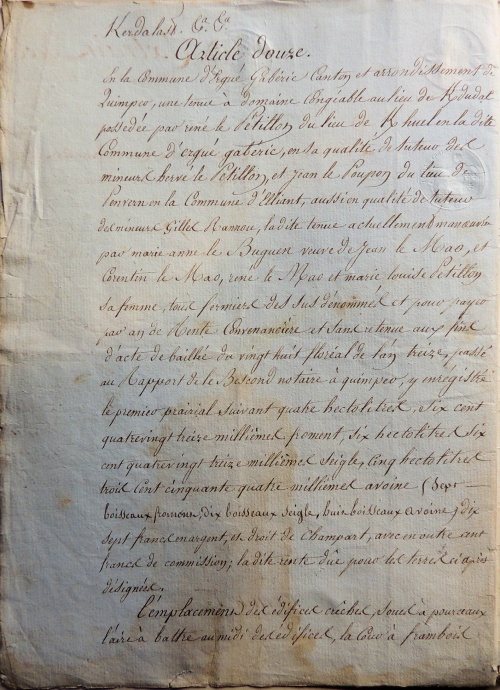 Kerdalast. Ca. Ca
Article douze.
En la Commune d'Ergué Gabéric Canton et arrondissement de
Quimper, une tenue à domaine Congéable au lieu de Kdudal
possedée par rené le Pétillon du lieu de K huel en la dite
Commune d'ergué gabéric, en sa qualité de tuteur des
mineurs hervé le Petillon, et jean le Poupon du lieu de
Penvern en la Commune d'Elliant, aussi en qualité de tuteur
des mineurs Gilles Rannou, la dite tenue actuellement manœuvrée
par marie anne le Buguen veuve de jean le Mao, et
Corentin le Mao, rené le Mao et marie louise Petillon
sa femme, tous fermiers des sus dénommés et pour payer
par an de Rente Convenancière et sans retenue aux fins
d'acte de baillée du vingt huit floréal de l'an treize, passé
au Rapport de le Bescond notaire à quimper, y enrégistré
le premier prairial suivant quatre hectolitres, six cent
quatrevingt treize millièmes froment, six hectolitres six
cent quatrevingt treize millièmes seigle, Cinq hectolitres
trois Cent cinquante quatre millièmes avoine (Sept
boisseaux froment, dix boisseaux seigle, huit boisseaux avoine) dix
sept francs en argent, et droit de Champart, avec en outre cent
francs de commission; la dite rente dûe pour les terres ci après
désignées.
L'emplacement des édifices crêches, soues à pourceaux
l'aire à battre au midi des édifices, la Cour à frambois